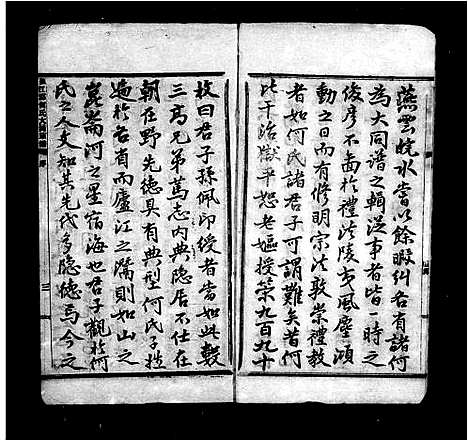 燕雲皖水嘗以餘暇糾合有諸何
為大同譜之輯從事者皆一時之
俊彦不圖於禮法陵夷風塵澒
動之日而有修明宗法敦崇禮教
者如何氏諸君子可謂難矣昔何
比干治獄平恕老嫗授策九百九十
故曰君子孫佩印綬者當如此數
三高兄弟篤志内典隐居不仕在
朝在野先徳具有典型何氏子姓
遍於各省而廬江之隲則如山之
崑崙河之星宿海也君子觀於何
氏之今文知其先代多隐徳焉今之
三